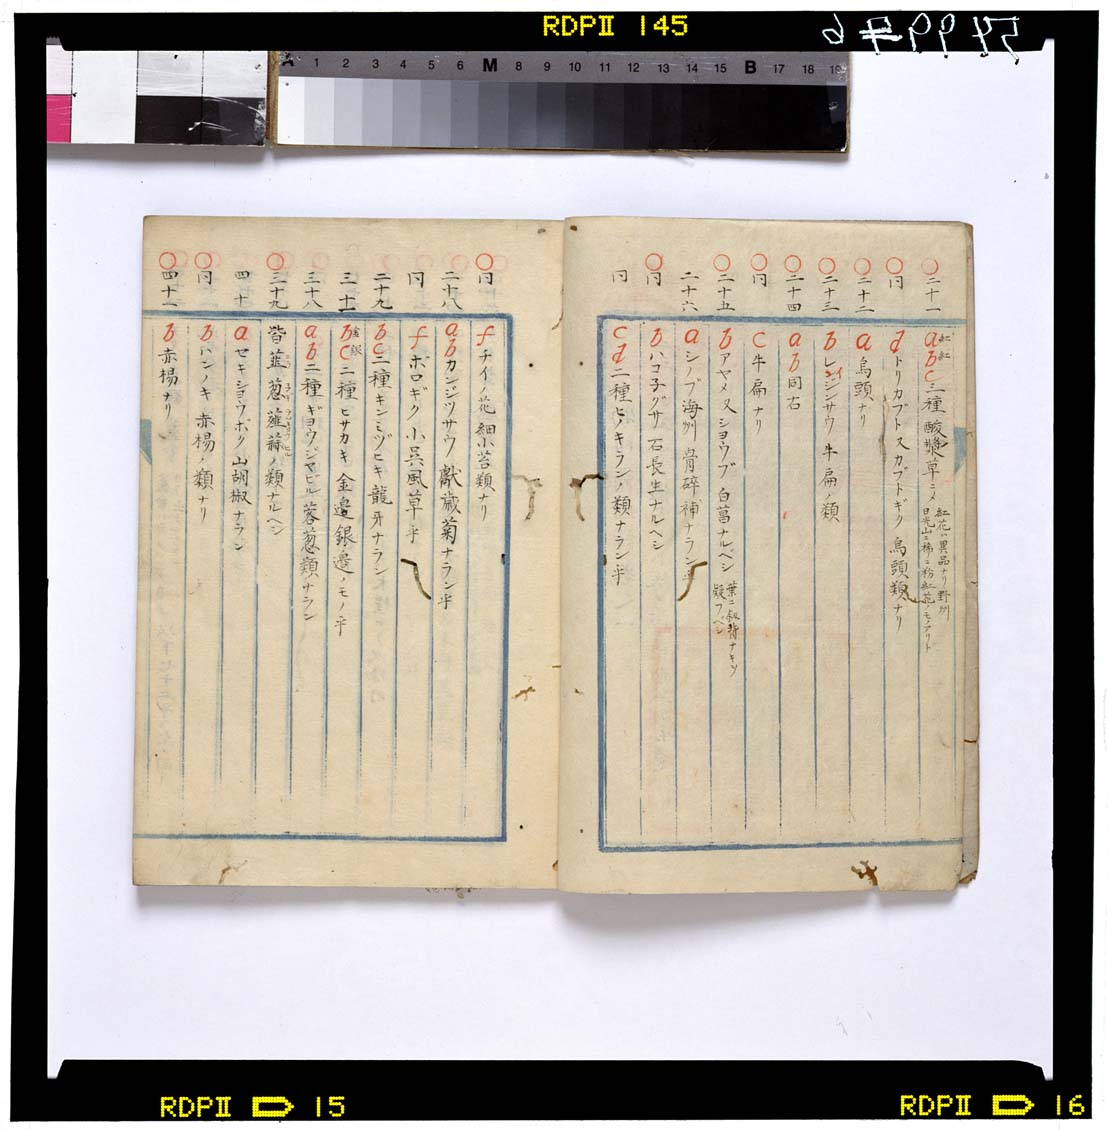 RDPII 145
549976
A 1 2 3 4 5 6 M 8 9 10 11 12 13 14 15 B 17 18 19
二十一 a b c 三種 酸漿草ニメ 紅花ハ異品ナリ 野州
日光山ニ稀ニ粉紅花ノモノアリト
同 d トリカブト スカブトギク 烏頭類ナリ
二十二 a 烏頭ナリ
二十三 b レンジンサウ 牛扁ノ類
二十四 a b 同右
同 c 牛扁ナリ
二十五 b アヤメ 又 シヨウブ 白菖ナルベシ 葉ニ剱脊ナキヲ
疑フベシ
二十六 a シノブ 海州骨碎補ナラン乎
同 b ハコ子グサ 石長生ナルヘシ
同 c d 二種 ヒノキランノ類ナラン乎
同 f チイノ花 細小苔類ナリ
二十八 a b カンジツサウ 獻歳菊ナラン乎
同 f ボロギク 小呉風草乎
二十九 b c 二種 キンミヅヒキ 龍牙ナラン
三十一 b c 金 銀 二種 ヒサカキ 金邊銀邊ノモノ乎
三十八 a b 二種 ギヨウジヤビル 茖葱類ナラン
三十九 皆 韮葱薤蒜ノ類ナルヘシ
四十 a セキシヨウボク 山胡椒ナラン
同 b ハンノキ 赤楊ノ類ナリ
四十一 b 赤楊ナリ
RDPII 15
RDPII 16